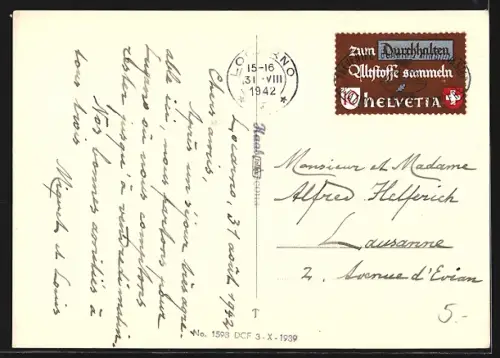 Locarno, 31 août 1942
Chers amis,
Après un séjour très agré-
able ici, nous partons pour
Lugano où nous comptons
rester jusqu'à vendredi
Nos bonnes amitiés à
tous trois
et Louis
LOCARNO
15-16
31. VIII
1942
zum Durchhalten
Altstoffe sammeln
10 HELVETIA
Monsieur et Madame
Alfred Helferich
Lausanne
2, Avenue d'Evian
5.-
No. 1598 DCF 3-X-1939